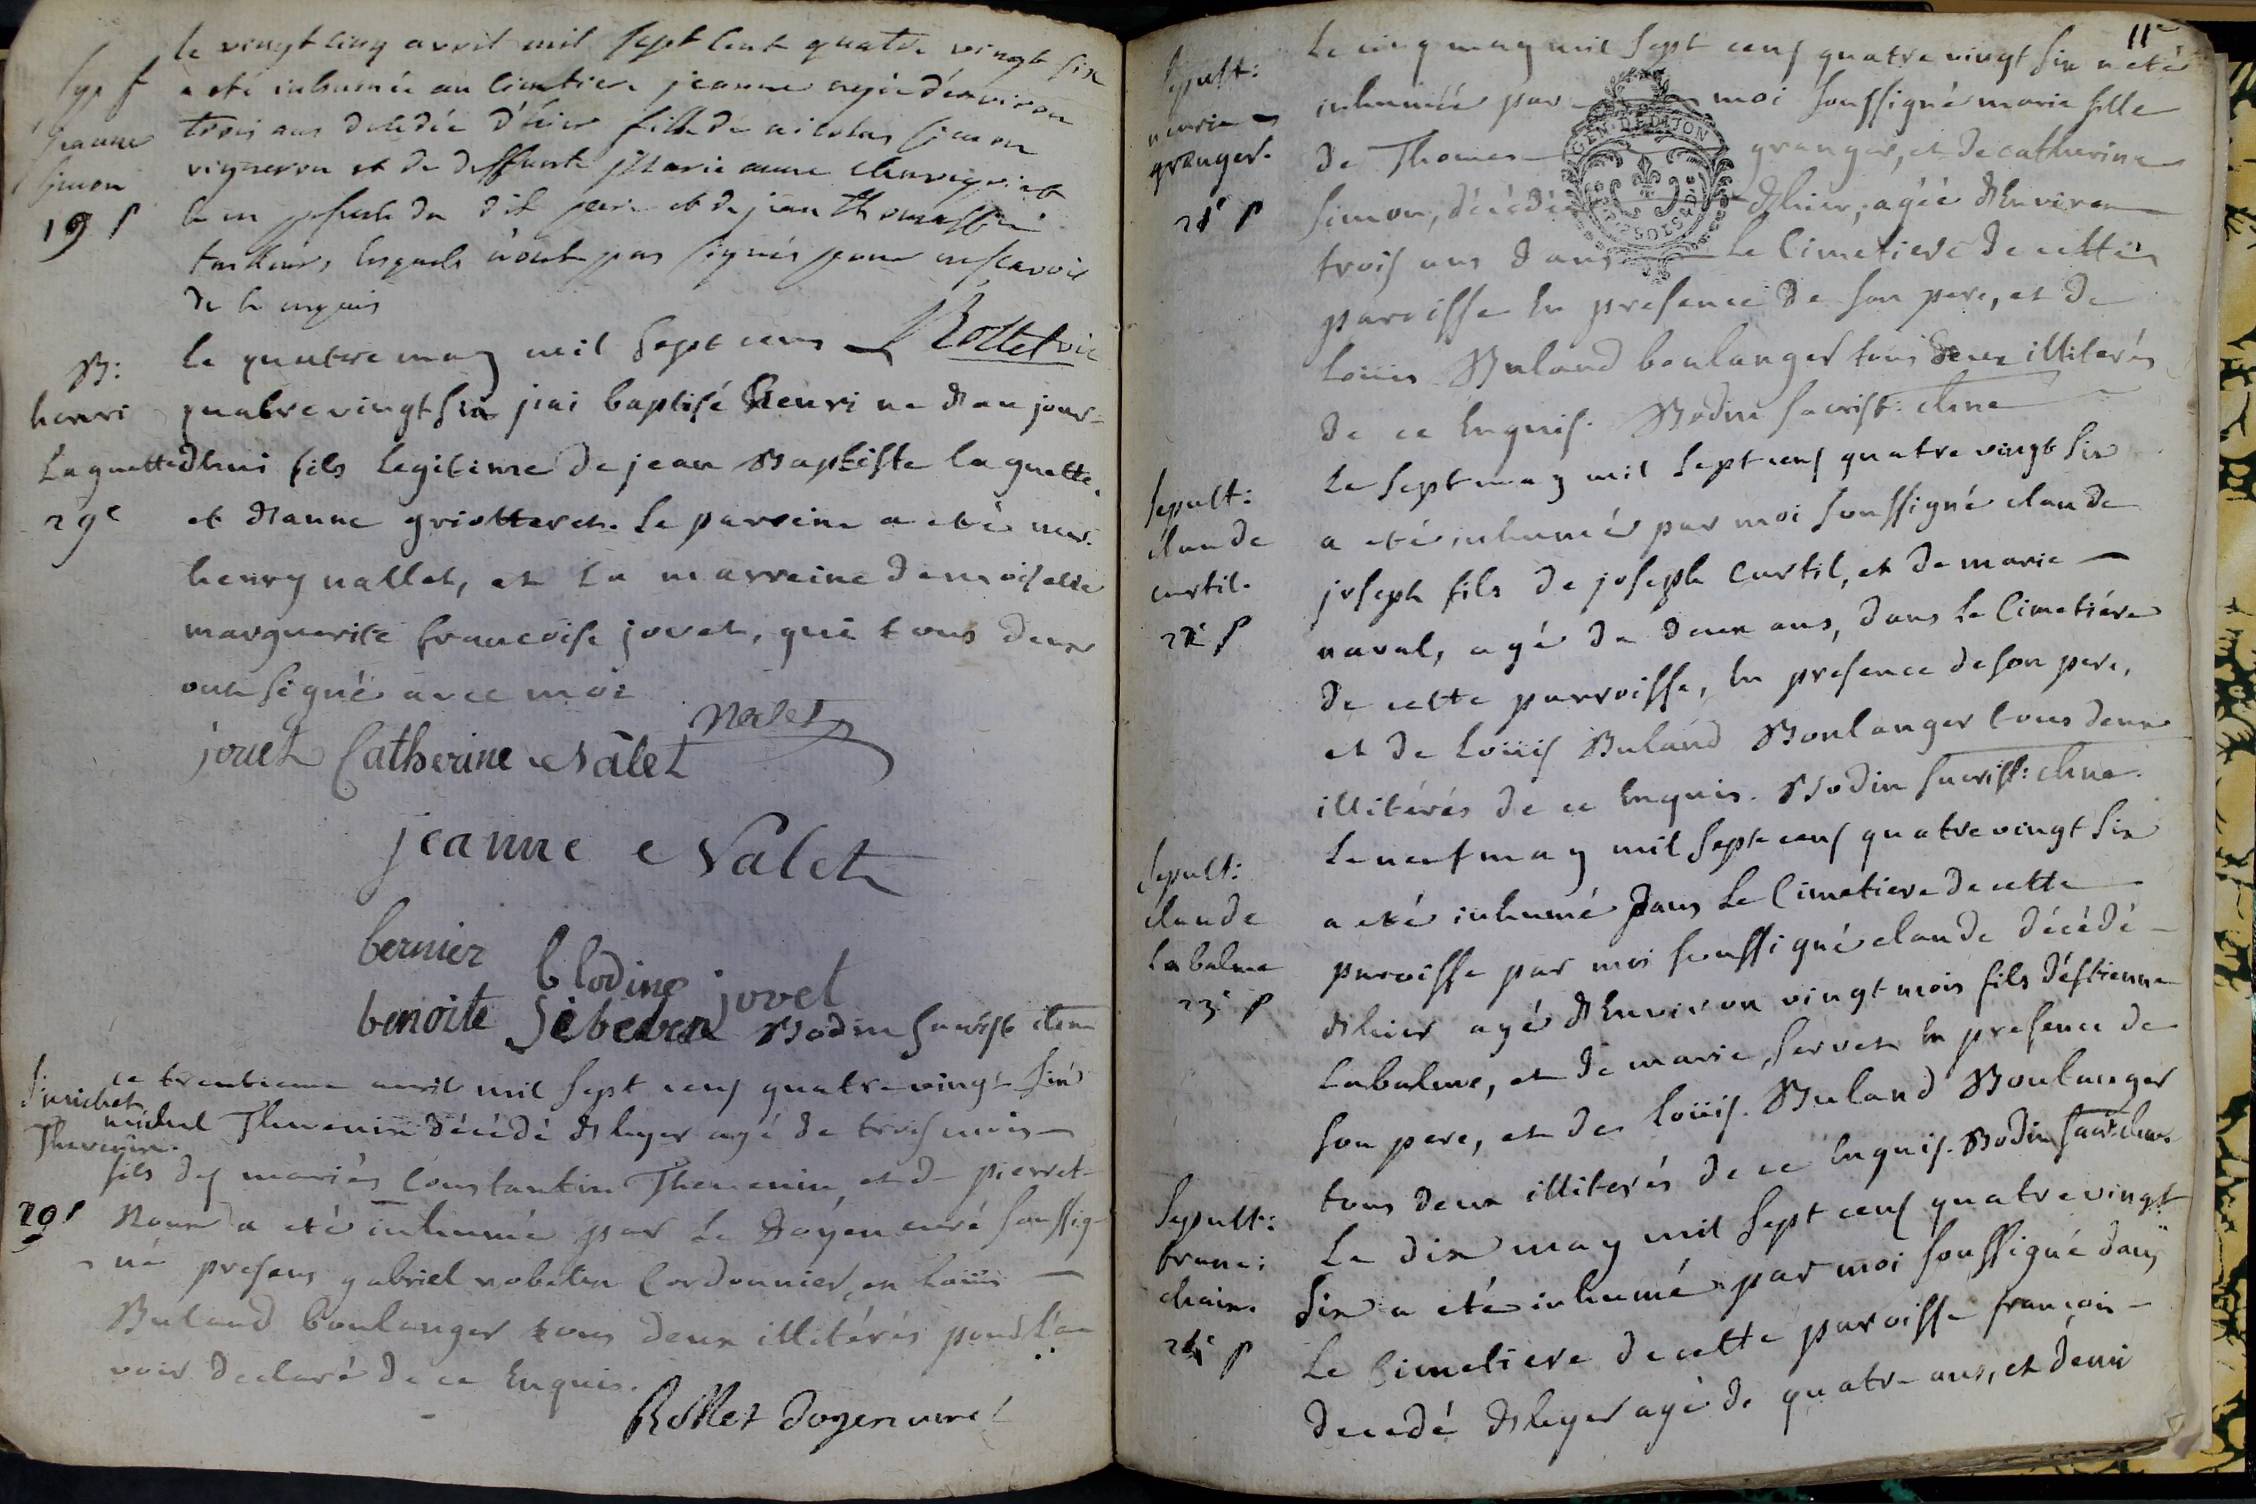 le vingt cinq avril mil sept cent quatre vingt six
a été inhumée au cimetiere jeanne agée d'environ
trois ans décédée d'hier fille de nicolas simon
vigneron et de deffunte marie anne
en presence du dit pere et de jean thomassin
lesquels n'ont pas signés pour ne scavoir
de ce enquis
Rollet vic
jeanne
simon
19 S
B:
henri
laguette
29e
le quatre may mil sept cens
quatre vingt six j'ai baptisé henri né d'aujour-
dhui fils legitime de jean Baptiste laguette
et d'anne griotteret. Le parrein a eté mr.
henry nallet, et la marreine demoiselle
marguerite francoise jovet, qui tous deux
ont signé avec moi
jouet Catherine Nalet Nalet
jeanne Nalet
bernier
blodine jovet
benoite Bodin sacrist
S. michel
Thevenin.
20 S
le trentieme avril mil sept cens quatre vingt six
michel Thevenin décédé d'hyer agé de trois mois
fils des mariés Constantin Thevenin, et de pierret-
a eté inhumé par Le Doyen curé soussig-
né presens gabriel robelin Cordonnier, et Loüis
Buland boulanger tous deux illitérés pour l'a-
voir declaré de ce Enquis.
Rollet doyen curé
11e
GEN. DE DIJON
Sepult:
marie
granger.
21e S
Le cinq may mil sept cens quatre vingt six a eté
inhumée par moi soussigné marie fille
de Thomas granger, et de catherine
simon, décédée d'hier, agée d'Environ
trois ans dans Le Cimetiere de cette
paroisse En presence de son pere, et de
Loüis Buland boulanger tous deux illiterés
de ce Enquis. Bodin sacrist:
Sepult:
claude
curtil.
22e S
Le sept may mil sept cens quatre vingt six
a eté inhumé par moi soussigné claude
joseph fils de joseph Curtil, et de marie
naval, agé de deux ans, dans Le Cimetiére
de cette parroisse, En presence de son pere,
et de Loüis Buland Boulanger tous deux
illitérés de ce Enquis. Bodin sacrist:
Sepult:
claude
Labalme
23e S
Le neuf may mil sept cens quatre vingt six
a eté inhumé Dans Le Cimetiere de cette
paroisse par moi soussigné claude décédé
d'hier agé d'Environ vingt mois fils d'éstienne
Labalme, et de marie servet En presence de
son pere, et de Loüis Buland Boulanger
tous deux illiterés de ce Enquis. Bodin
Sepult:
franc:
chaire.
24e S
Le dix may mil sept cens quatre vingt
six a eté inhumé par moi soussigné dans
Le Cimetiere de cette paroisse françois
decedé d'hyer agé de quatre ans, et demi